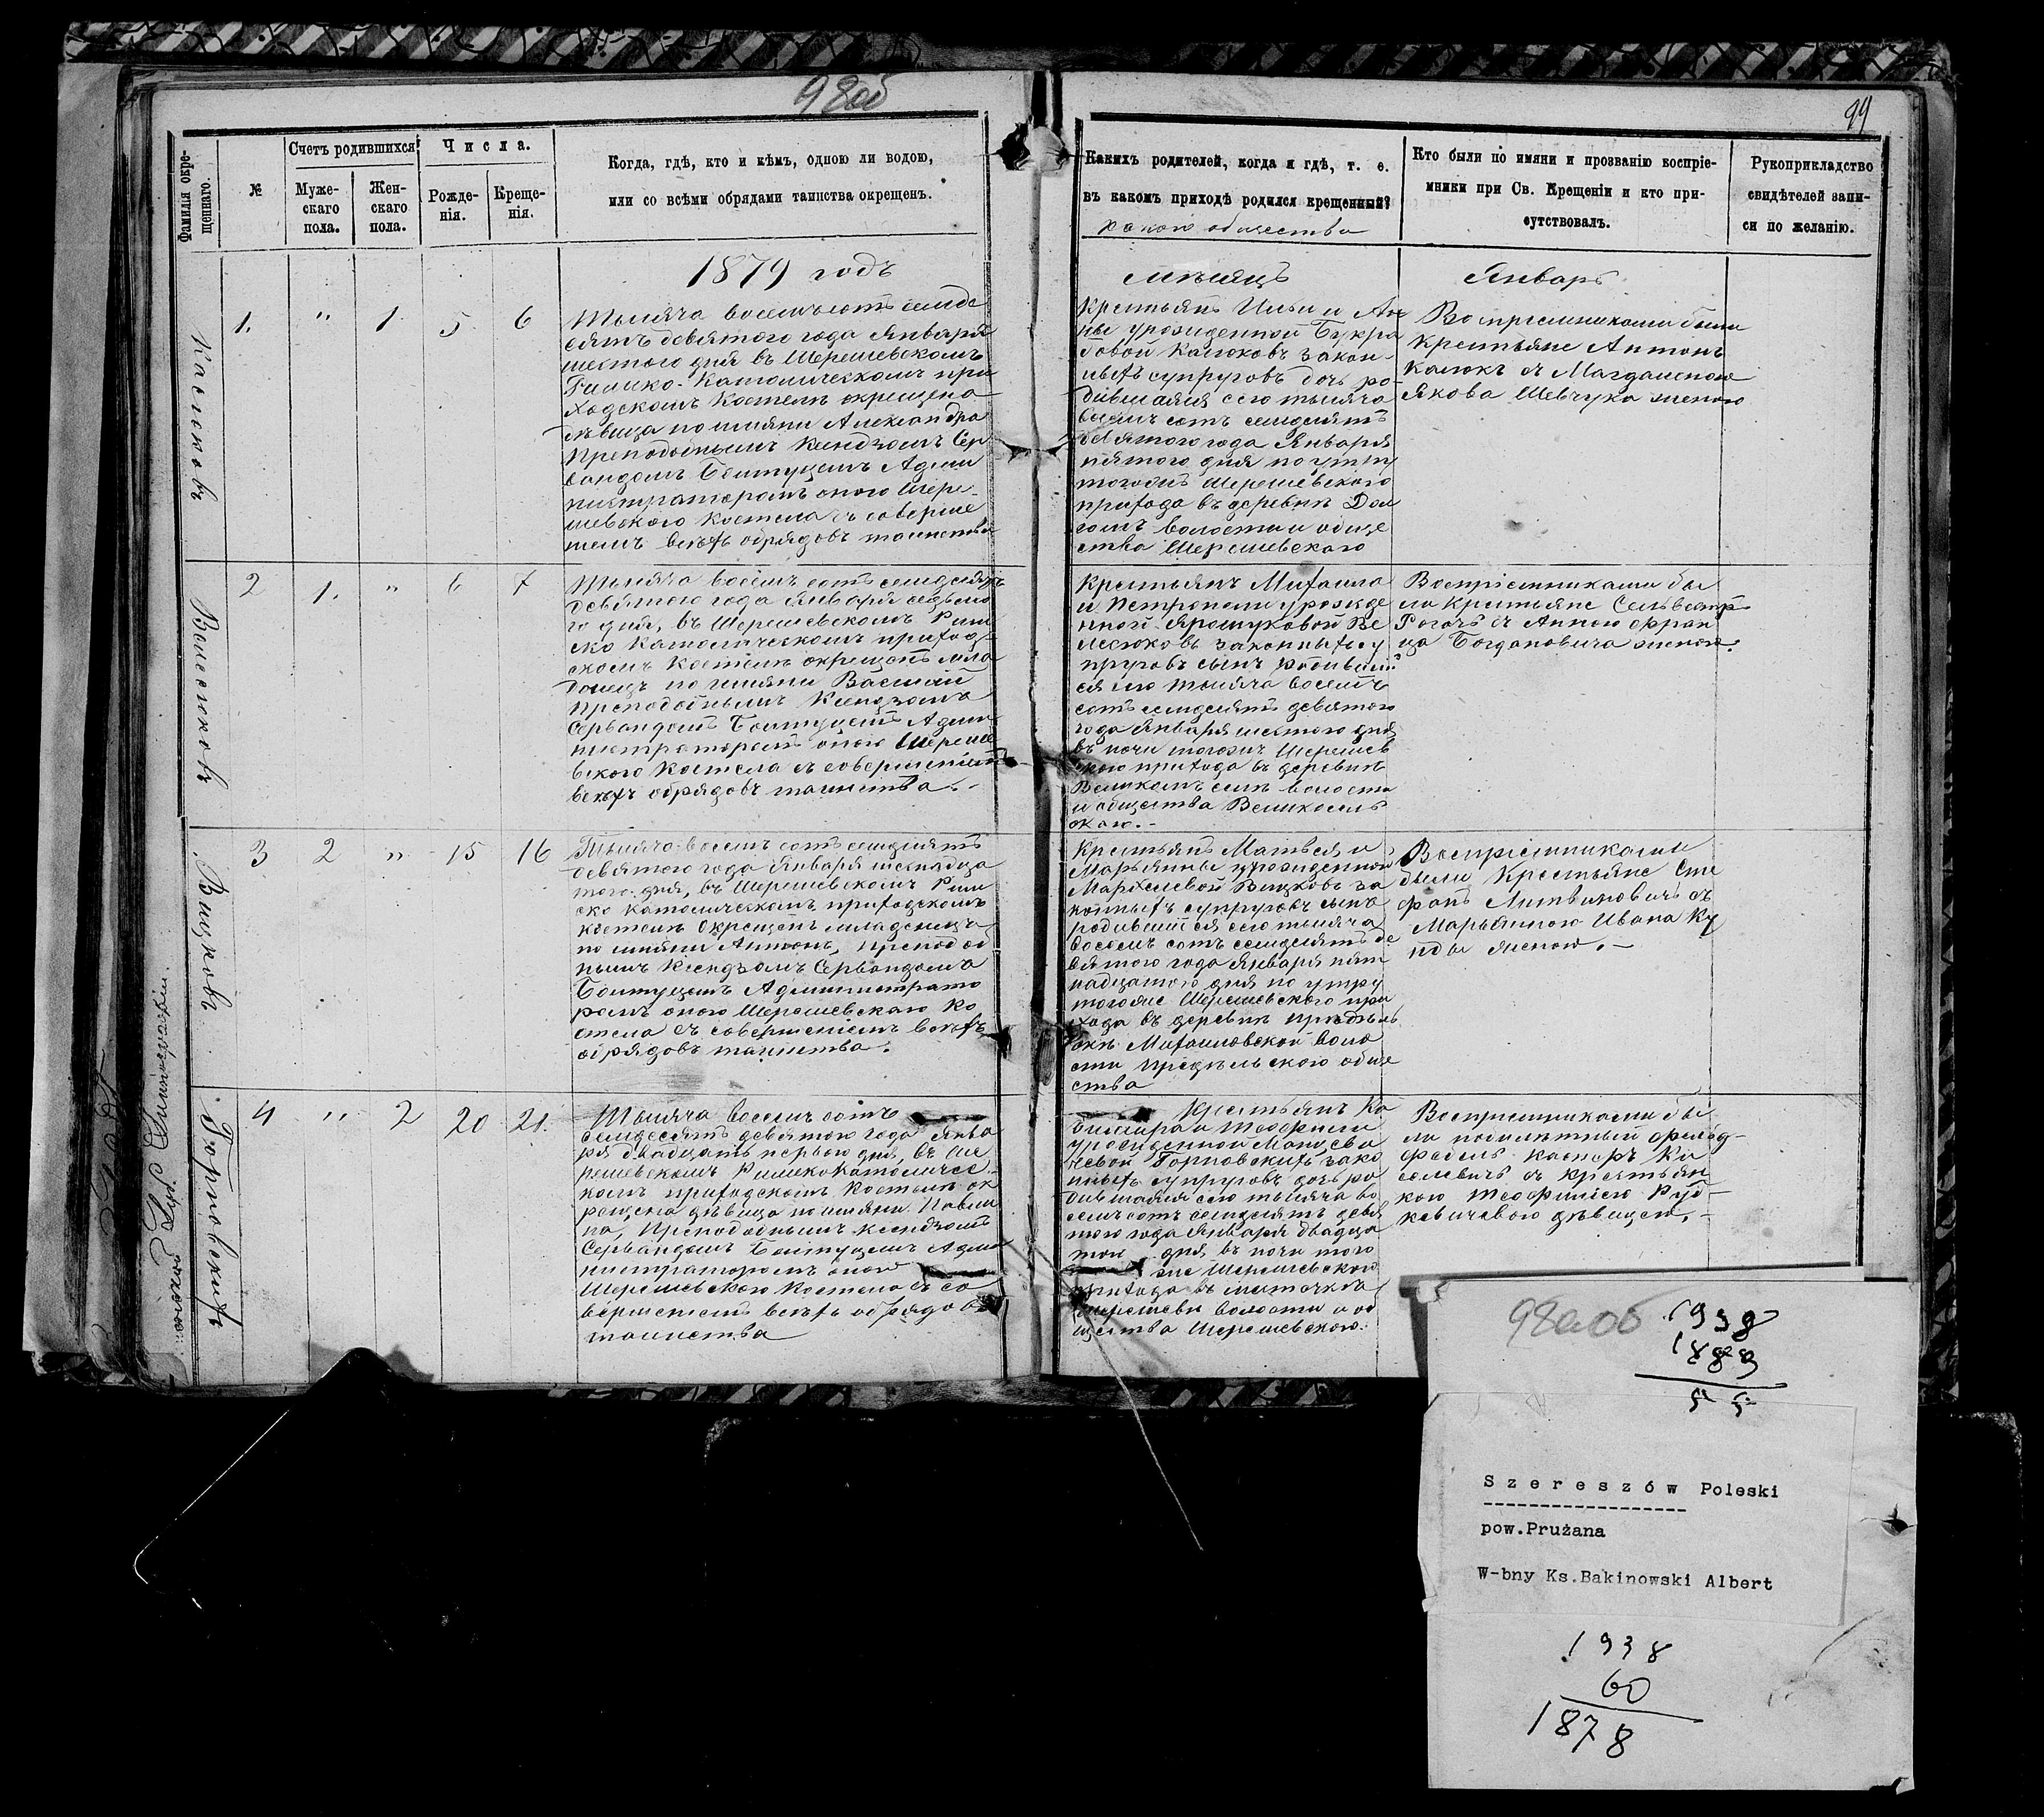 98об
99
Фамилія окре-
щеннаго.
№
Счетъ родившихся
Муже-
скаго
пола.
Жен-
скаго
пола.
Числа.
Рожде-
нія.
Креще-
нія.
Когда, гдѣ, кто и кѣмъ, одною ли водою,
или со всѣми обрядами таинства окрещенъ.
Какихъ родителей, когда и гдѣ, т. е.
въ какомъ приходѣ родился крещенный?
какого общества
Кто были по имяни и прозванію воспріе-
мники при Св. Крещеніи и кто при-
сутствовалъ.
Рукоприкладство
свидѣтелей запи-
си по желанію.
1879 годъ
мѣсяцъ
Январь
1. " 1 5 6
Тысяча восемьсотъ семьде
сятъ девятого года Января
шестого дня въ Шерешевскомъ
Римско-Католическомъ при
ходскомъ Костелѣ окрещена
дѣвица по имяни Александра
Преподобнымъ Ксендзомъ Сер
вандомъ Бонтуцемъ Адми
нистраторомъ оного Шере-
шевского Костела съ соверше
ніемъ всѣхъ обрядовъ таинства
Крестьянъ Ильи и Ан
ны урожденной Букра
бовой Касюковъ закон-
ныхъ супруговъ дочь ро-
дившаяся сего тысяча
восемь сотъ семдесятъ
девятого года Января
пятого дня по утру
тогожъ Шерешевского
прихода въ деревнѣ Дол
гомъ волости и обще
ства Шерешевского
Воспріемниками были
Крестьяне Антонъ
Касюкъ съ Магдаленою
Якова Шевчука женою
2 1. " 6 7
Велесюковъ
Тысяча восемь сотъ семдесятъ
девятого года Января седьмо
го дня, въ Шерешевскомъ Рим
ско Католическомъ приход
скомъ Костелѣ окрещенъ мла
денецъ по имяни Василій
Преподобнымъ Ксендзомъ
Сервандомъ Бонтуцемъ Адми
нистраторомъ оного Шереше
вского Костела съ совершеніемъ
всѣхъ обрядовъ таинства.-
Крестьянъ Михаила
и Петронели урожде
нной Ярошуковой Ве
лесюковъ законныхъ су
пруговъ сынъ родивший
ся сего тысяча восемь
сотъ семдесятъ девятого
года Января шестого дня
въ ночи тогожъ Шерешев
ского прихода въ деревнѣ
Великомъ селѣ волости
и общества Великосель
скаго.-
Воспріемниками бы
ли Крестьяне Сельвестръ
Рогачъ съ Анною Фран
ца Богдановича женою.
3 2 " 15 16
Вицковъ
Тысяча восемь сотъ семдесятъ
девятого года Января шеснадца
того дня, въ Шерешевскомъ Рим
ско Католическомъ приходскомъ
Костелѣ Окрещенъ младенецъ
по имяни Антонъ, Преподоб
нымъ Ксендзомъ Сервандомъ
Бонтуцемъ Администрато
ромъ оного Шерешевскаго Ко
стела съ совершеніемъ всѣхъ
обрядовъ таинства.
Крестьянъ Матвея и
Марьянны урожденной
Вицковъ за
конныхъ супруговъ сынъ
родившийся сего тысяча
восемь сотъ семдесятъ де
вятого года Января пят
надцатого дня по утру
тогоже Шерешевского при
хода въ деревнѣ Предѣль
скѣ Михайловской воло
сти Предѣльского обще
ства
Воспріемниками
были Крестьяне Сте
фанъ Литвиновичъ съ
Марьянною Ивана Ку
нды женою.-
4 " 2 20 21.
Горновскихъ
Тысяча восемь сотъ
семдесятъ девятого года Янва
ря двадцать первого дня, въ Ше
решевскомъ Римско Католичес-
комъ приходскомъ Костелѣ ок
рещена дѣвица по имяни Павли
на, Преподобнымъ Ксендзомъ
Сервандомъ Бонтуцемъ Адми
нистраторомъ оного
Шерешевского Костела съ со
вершеніемъ всѣхъ обрядовъ
таинства
Крестьянъ Ка
зимира и Теофили
урожденной Мацкеви
чевой Горновскихъ зако
нныхъ супруговъ дочь ро
дившаяся сего тысяча во
семь сотъ семдесятъ девя
того года Января двадца
того дня въ ночи того
же Шерешевского
прихода въ мѣстечкѣ
Шерешеви волости и об
щества Шерешевского.
Воспріемниками бы
ли
Каспръ Ки
селевичъ съ крестьян
кою Теофилією Рут-
кевичевою дѣвицею.-
98а об
1938
1883
55
Szereszów Poleski
pow.Prużana
W-bny Ks.Bakinowski Albert
1938
60
1878